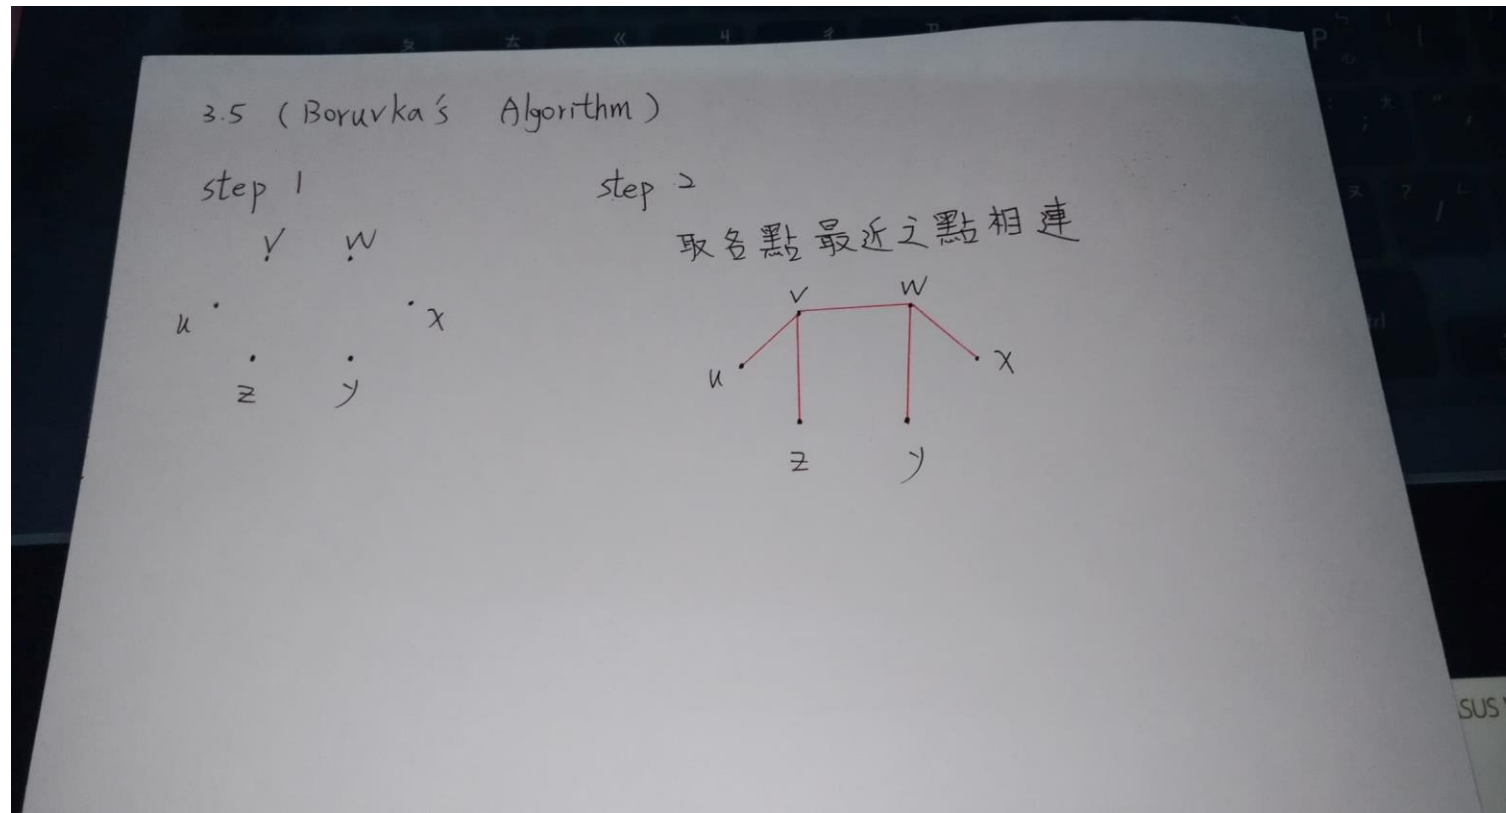 3.5 (Boruvka's Algorithm)
step 1
V W
u x
z y
step 2
取各點最近之點相連
V W
u x
z y
P
SUS